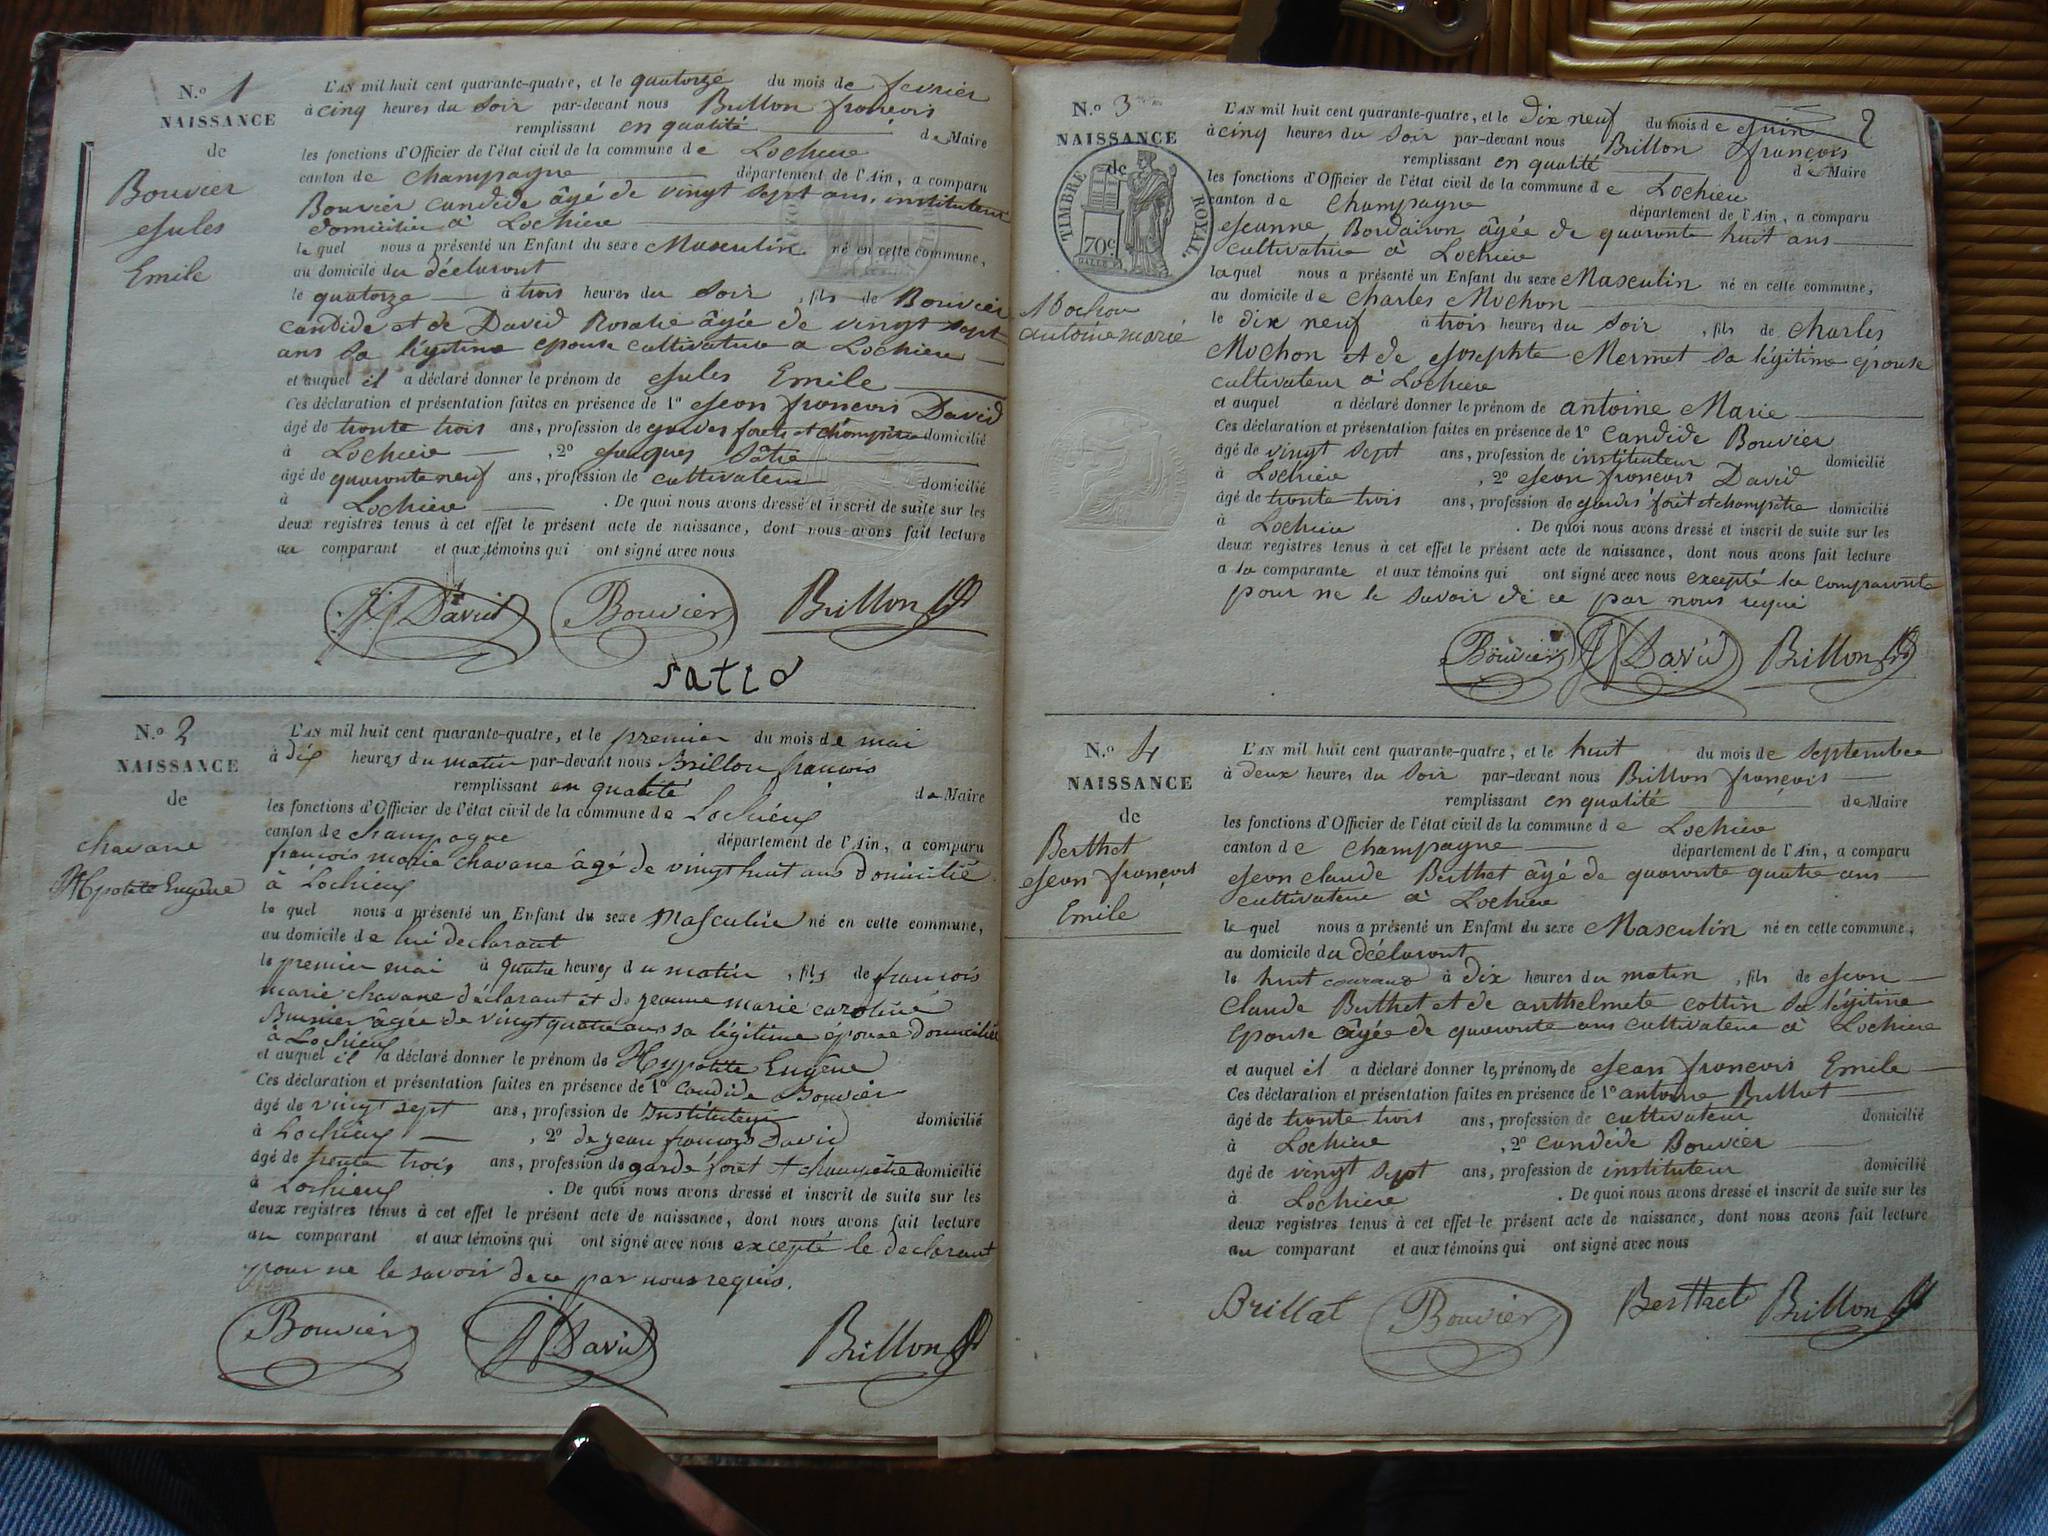 N.º 1
NAISSANCE
de
Bouvier
Jules
Emile
L'AN mil huit cent quarante-quatre, et le quatorze du mois de fevrier
à cinq heures du soir par-devant nous Brillon françois
remplissant en qualité de Maire
les fonctions d'Officier de l'état civil de la commune de Lochieu
canton de Champagne département de l'Ain, a comparu
Bouvier candide âgé de vingt sept ans, instituteur
domicilié à Lochieu
le quel nous a présenté un Enfant du sexe Masculin né en cette commune,
au domicile du déclarant
le quatorze à trois heures du soir, fils de Bouvier
candide et de David Rosalie âgée de vingt sept
ans sa légitime epouse cultivateur a Lochieu
et auquel il a déclaré donner le prénom de Jules Emile
Ces déclaration et présentation faites en présence de 1º Jean françois David
âgé de trente trois ans, profession de gardes forêts et champêtre domicilié
à Lochieu, 2º Jacques Sâtio
âgé de quarante neuf ans, profession de cultivateur domicilié
à Lochieu. De quoi nous avons dressé et inscrit de suite sur les
deux registres tenus à cet effet le présent acte de naissance, dont nous avons fait lecture
au comparant et aux témoins qui ont signé avec nous
J f David Bouvier Brillon
satio
N.º 2
NAISSANCE
de
chavane
Hypolite Eugène
L'AN mil huit cent quarante-quatre, et le premier du mois de mai
à dix heures du matin par-devant nous Brillon françois
remplissant en qualité de Maire
les fonctions d'Officier de l'état civil de la commune de Lochieux
canton de champagne département de l'Ain, a comparu
françois marie chavane âgé de vingt huit ans domicilié
à Lochieux
le quel nous a présenté un Enfant du sexe Masculin né en cette commune,
au domicile de lui declarant
le premier mai à quatre heures du matin, fils de françois
marie chavane déclarant et de jeanne marie caroline
Burnier âgée de vingt quatre ans sa légitime épouse domiciliée
à Lochieux
et auquel il a déclaré donner le prénom de Hypolite Eugène
Ces déclaration et présentation faites en présence de 1º candide Bouvier
âgé de vingt sept ans, profession de Instituteur domicilié
à Lochieux, 2º de jean françois David
âgé de trente trois ans, profession de garde foret et champêtre domicilié
à Lochieux. De quoi nous avons dressé et inscrit de suite sur les
deux registres tenus à cet effet le présent acte de naissance, dont nous avons fait lecture
au comparant et aux témoins qui ont signé avec nous excepté le declarant
pour ne le savoir de ce par nous requis.
Bouvier J f David Brillon
2
N.º 3
NAISSANCE
de
TIMBRE ROYAL
70c
Mochon
antoine marie
L'AN mil huit cent quarante-quatre, et le dix neuf du mois de Juin
à cinq heures du soir par-devant nous Brillon françois
remplissant en qualité de Maire
les fonctions d'Officier de l'état civil de la commune de Lochieu
canton de Champagne département de l'Ain, a comparu
Jeanne Bordairon âgée de quarante huit ans
cultivatrice à Lochieu
la quel nous a présenté un Enfant du sexe Masculin né en cette commune,
au domicile de Charles Mochon
le dix neuf à trois heures du soir, fils de Charles
Mochon et de Josephte Mermet sa légitime epouse
cultivateur à Lochieu
et auquel a déclaré donner le prénom de antoine Marie
Ces déclaration et présentation faites en présence de 1º Candide Bouvier
âgé de vingt sept ans, profession de instituteur domicilié
à Lochieu, 2º Jean françois David
âgé de trente trois ans, profession de gardes forêt et champêtre domicilié
à Lochieu. De quoi nous avons dressé et inscrit de suite sur les
deux registres tenus à cet effet le présent acte de naissance, dont nous avons fait lecture
a la comparante et aux témoins qui ont signé avec nous excepté la comparante
pour ne le savoir de ce par nous requi
Bouvier J f David Brillon
N.º 4
NAISSANCE
de
Berthet
Jean françois
Emile
L'AN mil huit cent quarante-quatre, et le huit du mois de Septembre
à deux heures du soir par-devant nous Brillon françois
remplissant en qualité de Maire
les fonctions d'Officier de l'état civil de la commune de Lochieu
canton de Champagne département de l'Ain, a comparu
Jean claude Berthet âgé de quarante quatre ans
cultivateur à Lochieu
le quel nous a présenté un Enfant du sexe Masculin né en cette commune,
au domicile du déclarant
le huit courant à dix heures du matin, fils de Jean
Claude Berthet et de anthelmete cottin sa légitime
epouse âgée de quarante ans cultivateur à Lochieu
et auquel il a déclaré donner le prénom de Jean françois Emile
Ces déclaration et présentation faites en présence de 1º antoine Brillat
âgé de trente trois ans, profession de cultivateur domicilié
à Lochieu, 2º candide Bouvier
âgé de vingt sept ans, profession de instituteur domicilié
à Lochieu. De quoi nous avons dressé et inscrit de suite sur les
deux registres tenus à cet effet le présent acte de naissance, dont nous avons fait lecture
au comparant et aux témoins qui ont signé avec nous
Brillat Bouvier Berthet Brillon